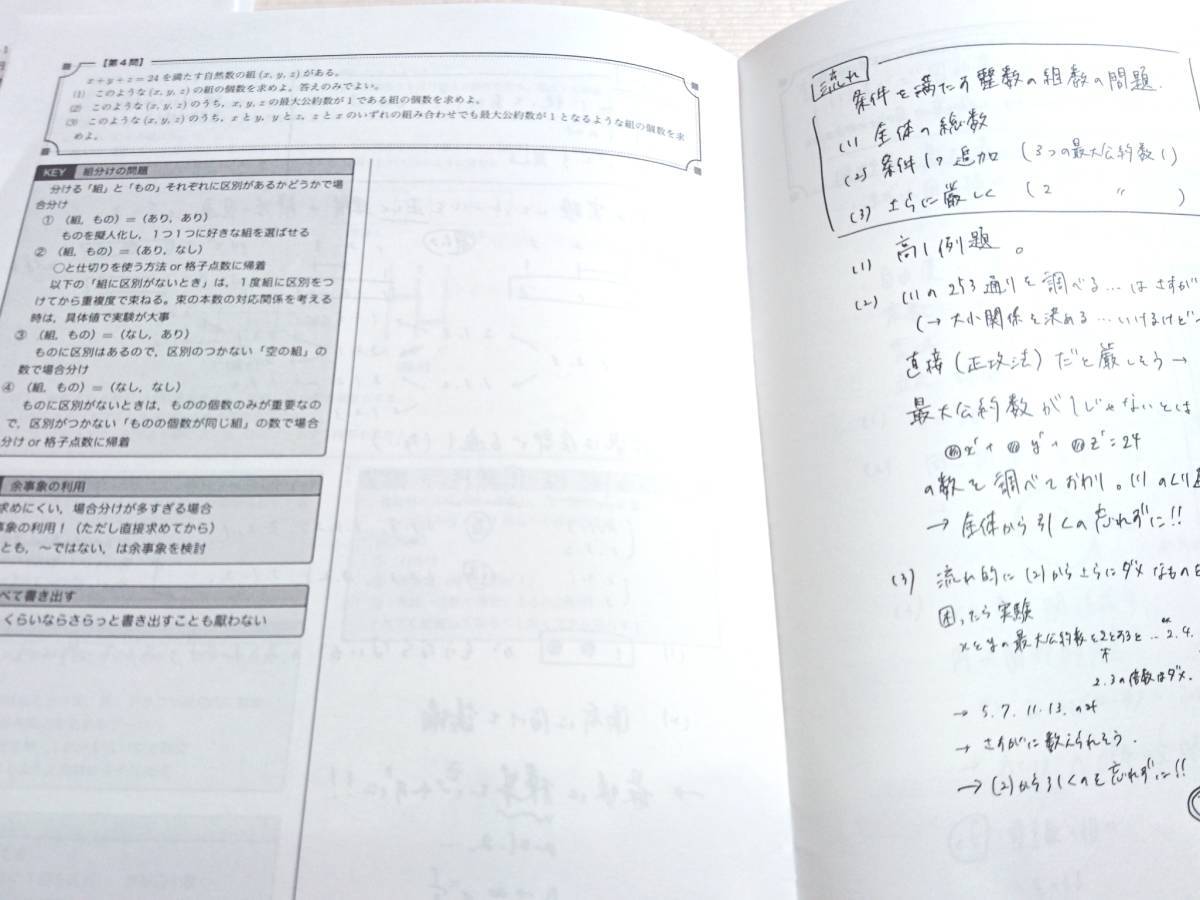 【第4問】
x+y+z=24 を満たす自然数の組 (x, y, z) がある。
(1) このような (x, y, z) の組の個数を求めよ。答えのみでよい。
(2) このような (x, y, z) のうち, x, y, z の最大公約数が1である組の個数を求めよ。
(3) このような (x, y, z) のうち, x と y, y と z, z と x のいずれの組み合わせでも最大公約数が1となるような組の個数を求
めよ。
KEY 組分けの問題
分ける「組」と「もの」それぞれに区別があるかどうかで場
合分け
① (組, もの) = (あり, あり)
ものを擬人化し, 1つ1つに好きな組を選ばせる
② (組, もの) = (あり, なし)
○と仕切りを使う方法 or 格子点数に帰着
以下の「組に区別がないとき」は, 1度組に区別をつ
けてから重複度で束ねる。束の本数の対応関係を考える
時は, 具体値で実験が大事
③ (組, もの) = (なし, あり)
ものに区別はあるので, 区別のつかない「空の組」の
数で場合分け
④ (組, もの) = (なし, なし)
ものに区別がないときは, ものの個数のみが重要なの
で, 区別がつかない「ものの個数が同じ組」の数で場合
分け or 格子点数に帰着
余事象の利用
求めにくい, 場合分けが多すぎる場合
事象の利用！(ただし直接求めてから)
とも, ～ではない, は余事象を検討
べて書き出す
くらいならさらっと書き出すことも厭わない
流れ
条件を満たす整数の組数の問題.
(1) 全体の総数
(2) 条件1つ追加 (3つの最大公約数1)
(3) さらに厳しく (2 〃 )
(1) 高1例題。
(2) (1)の253通りを調べる…はさすが
(→ 大小関係を決める…いけるけど
直接(正攻法)だと厳しそう→
最大公約数が1じゃないとは
x'+ y'+ z'=24
の数を調べておわり。(1)のくり
→ 全体から引くの忘れずに!!
(3) 流れ的に(2)からさらにダメなものを
困ったら実験
xとyの最大公約数を2とすると… 2.4.
2.3の倍数はダメ.
→ 5.7.11.13.のみ
→ さすがに数えられそう.
→ (2)から引くのを忘れずに!!